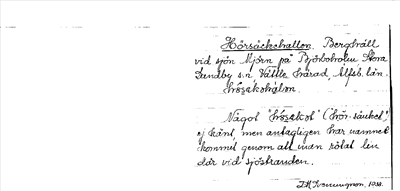 Hörsäckshallen. Berghäll
vid sjön Mjörn på Björboholm Stora
Lundby s:n Vättle härad, Älfsb. län.
Något "hösäkot" ("hör-säcket")
ej känt, men antagligen har namnet
kommit genom att man rötat lin
där vid sjöstranden.
1938.